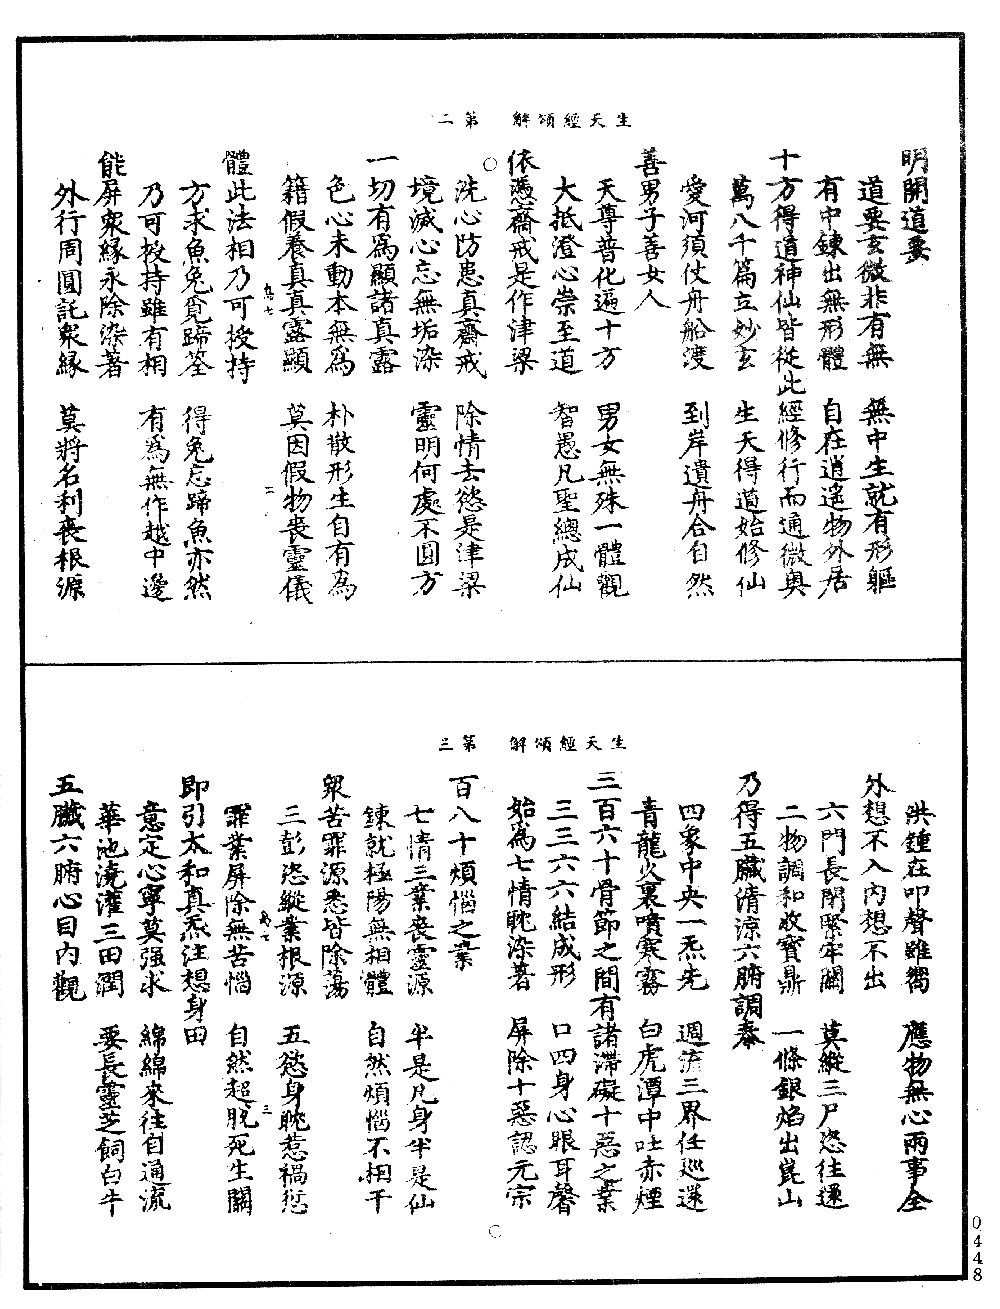 生天經頌解　第二
明開道要
道要玄微非有無　無中生就有形軀
有中鍊出無形體　自在逍遥物外居
十方得道神仙皆從此經修行而通微奥
萬八千篇立妙玄　生天得道始修仙
愛河須仗舟船渡　到岸遺舟合自然
善男子善女人
天尊普化遍十方　男女無殊一體觀
大抵澄心崇至道　智愚凡聖總成仙
依憑齋戒是作津梁
洗心防患真齋戒　除情去慾是津梁
境滅心忘無垢染　靈明何處不圓方
一切有為顯諸真露
色心未動本無為　朴散形生自有為
籍假養真真露顯　莫因假物喪靈儀
體此法相乃可授持
方求魚兔覓蹄筌　得兔忘蹄魚亦然
乃可授持雖有相　有為無作越中邊
能屏衆緣永除染著
外行周圓託衆緣　莫將名利喪根源
生天經頌解　第三
洪鍾在叩聲雖嚮　應物無心兩事全
外想不入内想不出
六門長閉緊牢關　莫縱三尸恣往還
二物調和收寶鼎　一條銀焰出崑山
乃得五臟清涼六腑調泰
四象中央一炁先　週流三界任巡還
青龍火裏噴寒霧　白虎潭中吐赤煙
三百六十骨節之間有諸滯礙十惡之業
三三六六結成形　口四身心眼耳聲
始為七情耽染著　屏除十惡認元宗
百八十煩惱之業
七情三業喪靈源　半是凡身半是仙
鍊就極陽無相體　自然煩惱不相干
衆苦罪源悉皆除蕩
三彭恣縱業根源　五慾身耽惹禍愆
罪業屏除無苦惱　自然超脱死生關
即引太和真炁注想身田
意定心寧莫强求　綿綿來往自通流
華池澆灌三田潤　要長靈芝飼白牛
五臟六腑心目内觀
0448